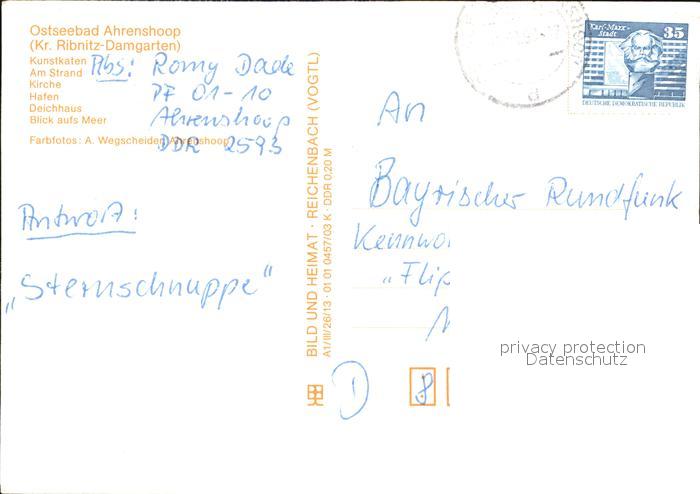 Ostseebad Ahrenshoop
(Kr. Ribnitz-Damgarten)
Kunstkaten
Am Strand
Kirche
Hafen
Deichhaus
Blick aufs Meer
Farbfotos: A. Wegscheider, Ahrenshoop
Abs: Romy Dade
PF 01-10
Ahrenshoop
DDR 2593
Antwort:
„Sternschnuppe"
BILD UND HEIMAT · REICHENBACH (VOGTL)
A1/III/26/13 · 01 01 0457/03 K · DDR 0,20 M
Karl-Marx-
Stadt
35
DEUTSCHE DEMOKRATISCHE REPUBLIK
An
Bayrischer Rundfunk
Kennwo
„Flip
D 8
privacy protection
Datenschutz